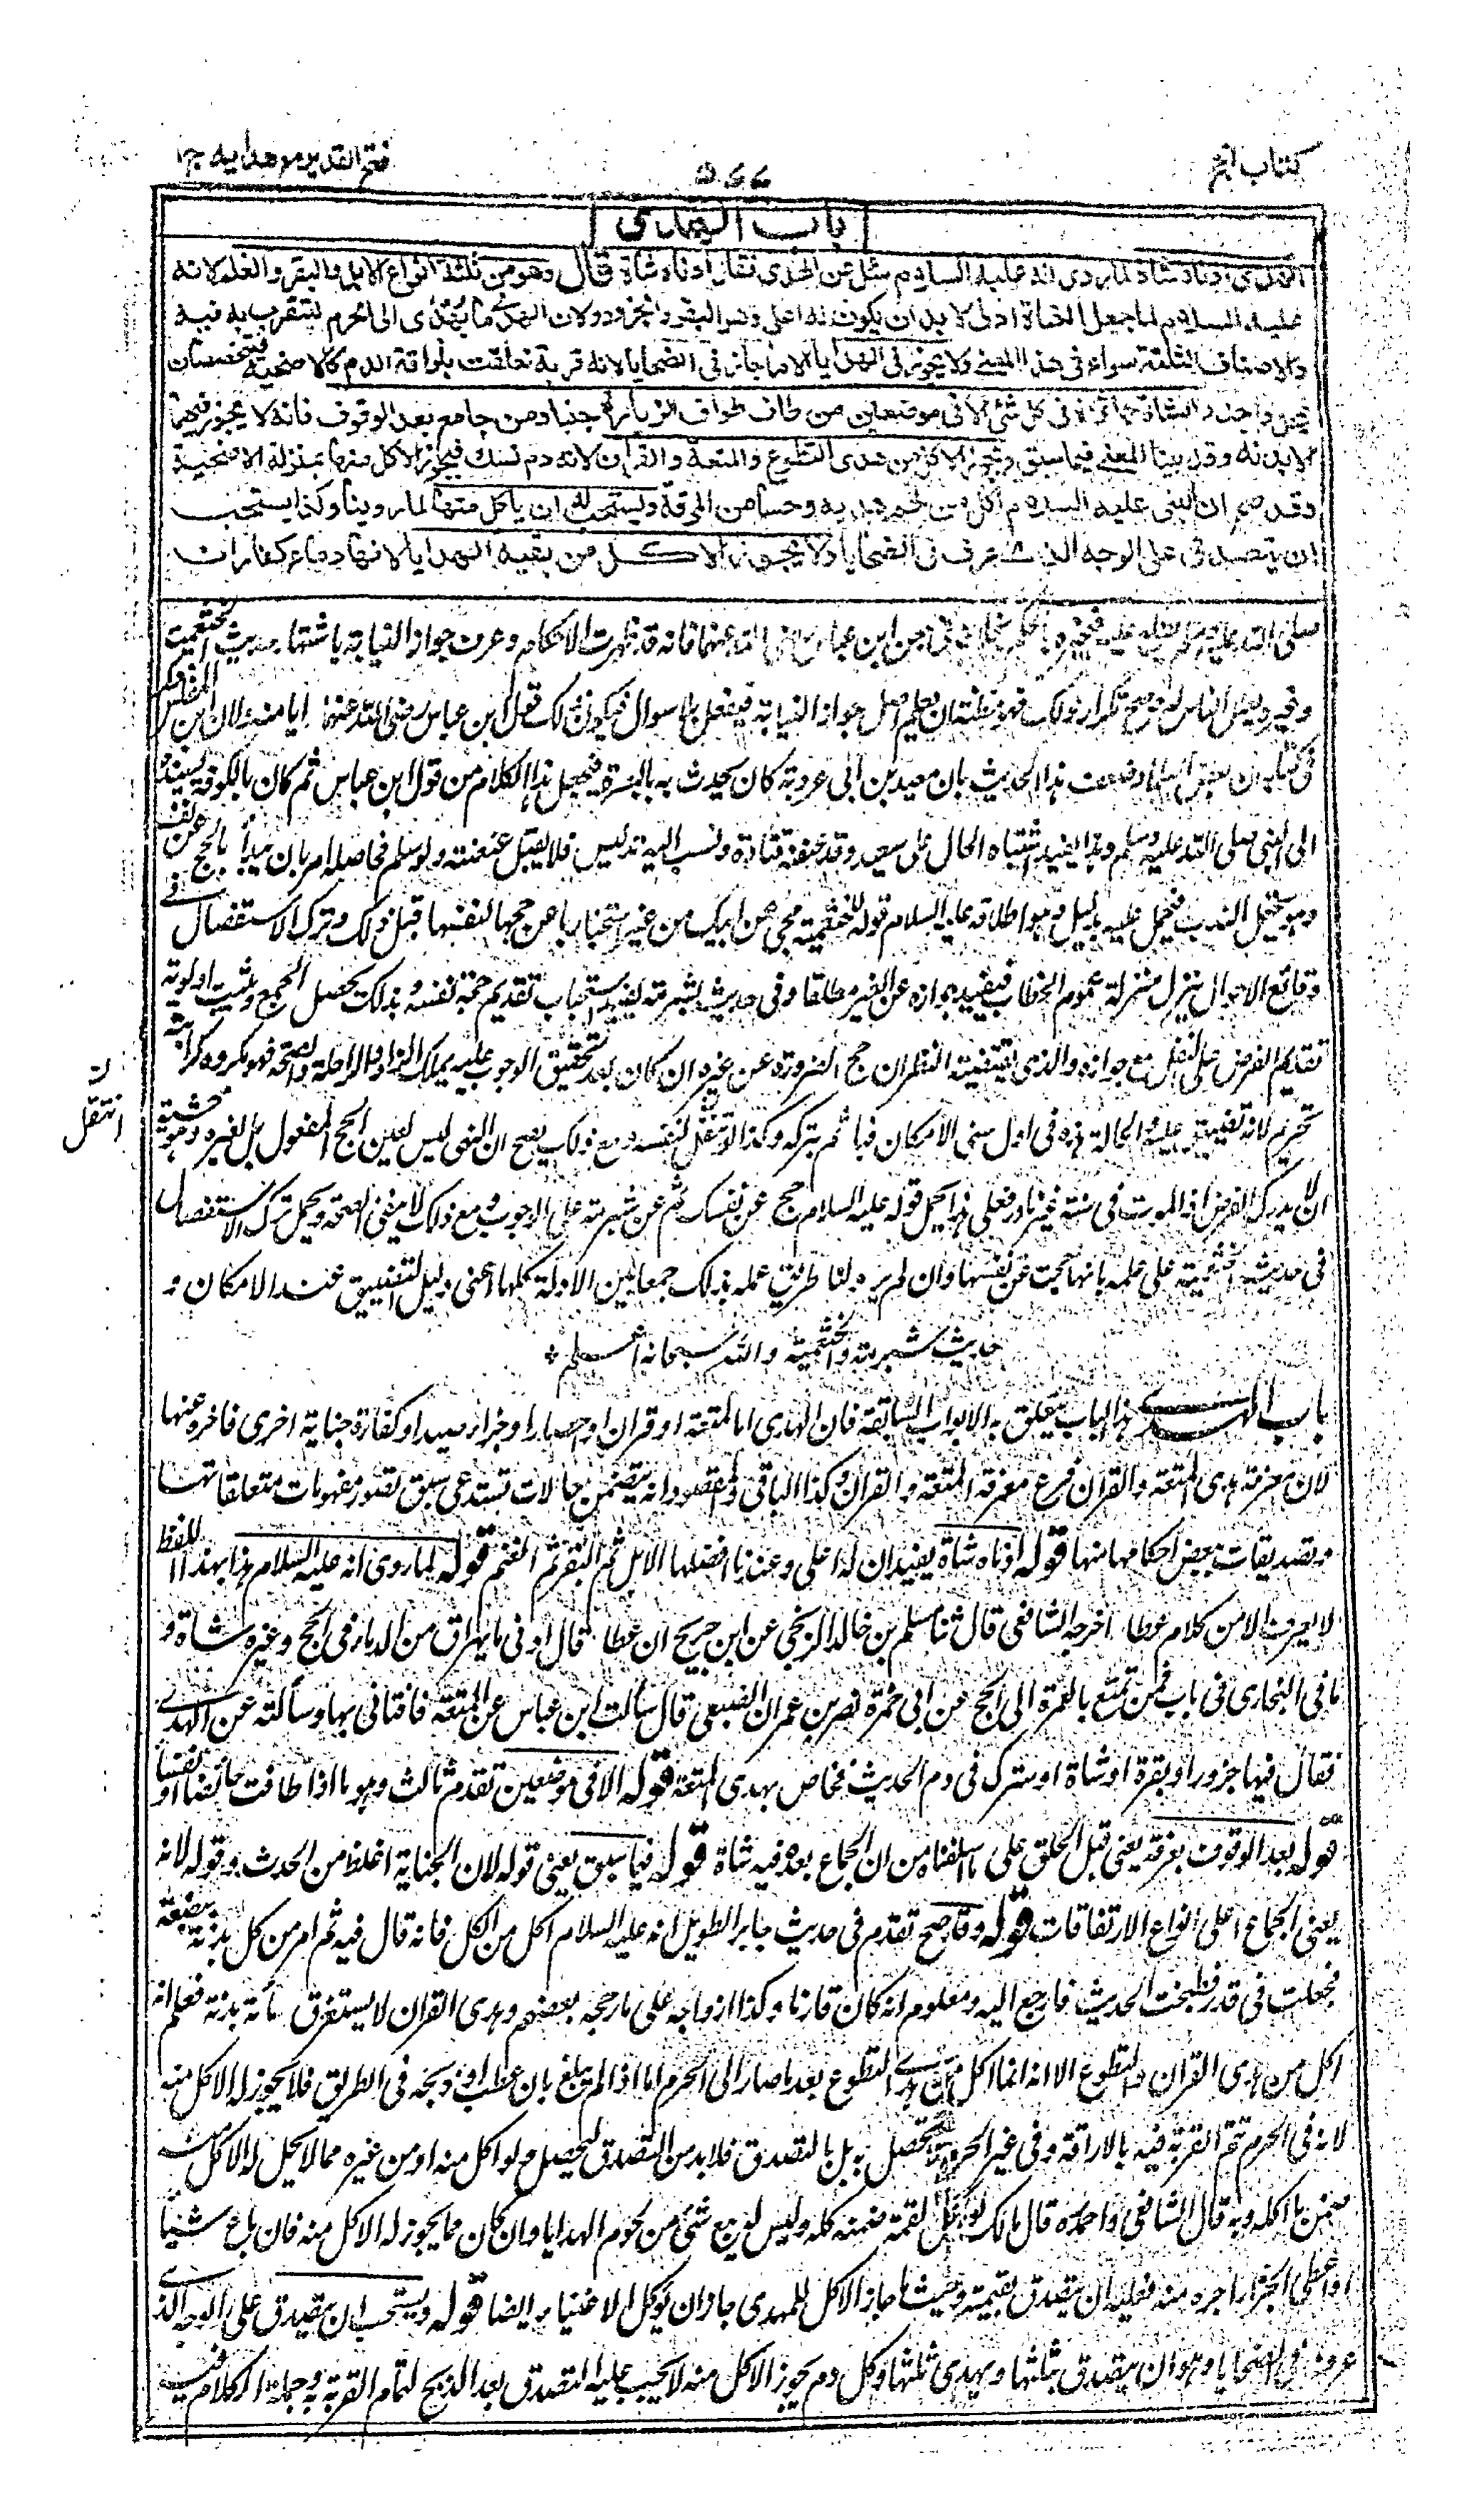 كتاب الحج
فتح القدير مع هدايه ج ١
باب الهدى
الهدى ادناه شاة لما روى انه عليه السلام سئل عن الهدى فقال ادناه شاة قال وهو من ثلثة انواع الابل والبقر والغنم لانه
عليه السلام لما جعل الشاة ادنى لا بد ان يكون له اعلى وهو البقر والجزور ولان الهدى ما يهدى الى الحرم ليتقرب به فيه
والاصناف الثلثة سواء فى هذا المعنى ولا يجوز فى الهدايا الا ما جاز فى الضحايا لانه قربة تعلقت باراقة الدم كالاضحية فيتخصصان
بمحل واحد والشاة جائزة فى كل شئ الا فى موضعين من طاف طواف الزيارة جنبا ومن جامع بعد الوقوف فانه لا يجوز فيهما
الا بدنة وقد بينا المعنى فيما سبق ويجوز الاكل من هدى التطوع والمتعة والقران لانه دم نسك فيجوز الاكل منها بمنزلة الاضحية
وقد صح ان النبى عليه السلام اكل من لحم هديه وحسا من المرقة ويستحب له ان ياكل منها لما روينا وكذا يستحب
ان يتصدق على الوجه الذى عرف فى الضحايا ولا يجوز الاكل من بقية الهدايا لانها دماء كفارات
صلى الله عليه وسلم عن ابن عباس رضى الله عنهما فانه قد ظهرت الاحكام وعرف جواز النيابة باشتهار حديث الخثعمية
وغيره بين الناس ان يعلم اصل جواز النيابة فيفعل بلا سوال فيكون ذلك قول ابن عباس رضى الله عنهما ايا منه لان ابن المفلس
فى كتابه ان بعض العلماء ضعف هذا الحديث بان سعيد بن ابى عروبة كان يحدث به بالبصرة فيجعل هذا الكلام من قول ابن عباس ثم كان بالكوفة يسنده
الى النبى صلى الله عليه وسلم وهذا يفيد اشتباه الحال على سعيد وقد عنعنه قتادة ونسب اليه تدليس فلا يقبل عنعنته ولو سلم فحاصله امر بان يبدأ بالحج عن نفسه
وهو يحتمل الندب فيحمل عليه بدليل وهو اطلاقه عليه السلام قوله للخثعمية حجى عن ابيك من غير استخبارها عن حجها لنفسها قبل ذلك وترك الاستفصال فى
وقائع الاحوال ينزل منزلة عموم الخطاب فيفيد جوازه عن الغير مطلقا وفى حديث شبرمة يفيد استحباب تقديم حجة نفسه وبذلك يحصل الجمع ويثبت اولوية
تقديم الفرض على النفل مع جوازه والذى يقتضيه النظر ان حج الصرورة عن غيره ان كان بعد تحقيق الوجوب عليه بملك الزاد والراحلة والصحة فهو مكروه كراهة
تحريم لانه تضيق عليه والحالة هذه فى اول سنى الامكان فياثم بتركه وكذا لو تنفل لنفسه ومع ذلك يصح لان النهى ليس لعين الحج المفعول بل لغيره وهو خشية
ان لا يدرك الفرض اذ الموت فى سنة غير نادر فعلى هذا يحمل قوله عليه السلام حج عن نفسك ثم عن شبرمة على الوجوب ومع ذلك لا ينفى الصحة ويحمل ترك الاستفصال
فى حديث الخثعمية على علمه بانها حجت عن نفسها وان لم يرو لنا طريق علمه بذلك جمعا بين الادلة كلها اعنى دليل التضييق عند الامكان و
حديث شبرمة والخثعمية والله سبحانه اعلم
باب الهدى هذا الباب يتعلق به الابواب السابقة فان الهدى اما لمتعة او قران او احصار او جزاء صيد او كفارة جناية اخرى فاخره عنها
لان معرفة هدى المتعة والقران فرع معرفة المتعة والقران وكذا الباقى والمقصود انه يتضمن حالات تستدعى سبق تصور مفهومات متعلقاتها
وتصديقات بعض احكامها منها قوله ادناه شاة يفيد ان له اعلى وعندنا افضلها الابل ثم البقر ثم الغنم قوله لما روى انه عليه السلام هذا بهذا اللفظ
لا يعرف الا من كلام عطاء اخرجه الشافعى قال ثنا مسلم بن خالد الزنجى عن ابن جريج ان عطاء قال ادنى ما يهراق من الدماء فى الحج وغيره شاة و
ما فى البخارى فى باب فمن تمتع بالعمرة الى الحج عن ابى جمرة نصر بن عمران الضبعى قال سألت ابن عباس عن المتعة فافتانى بها وسألته عن الهدى
فقال فيها جزور او بقرة او شاة او شرك فى دم الحديث فخاص بهدى المتعة قوله الا فى موضعين تقدم ثالث وهو ما اذا طافت حائضا او نفساء
قوله بعد الوقوف بعرفة يعنى قبل الحلق على ما اسلفناه من ان الجماع بعده فيه شاة قوله فيما سبق يعنى قوله لان الجناية اغلظ من الحدث وقوله لانه
يعنى الجماع اعلى انواع الارتفاقات قوله وقد صح تقدم فى حديث جابر الطويل انه عليه السلام اكل من الكل فانه قال فيه ثم امر من كل بدنة ببضعة
فجعلت فى قدر فطبخت الحديث فارجع اليه ومعلوم انه كان قارنا وكذا ازواجه على ما رجحه بعضهم وهدى القران لا يستغرق مائة بدنة فعلم انه
اكل من هدى القران والتطوع الا انه انما اكل من هدى التطوع بعد ما صار الى الحرم اما اذا لم يبلغ بان عطب او ذبحه فى الطريق فلا يجوز له الاكل منه
لانه فى الحرم تتم القربة فيه بالاراقة وفى غير الحرم لا يحصل به بل بالتصدق فلا بد من التصدق ليحصل ولو اكل منه او من غيره مما لا يحل له الاكل منه
ضمن ما اكله وبه قال الشافعى واحمد وقال مالك لو اكل لقمة ضمنه كله وليس له بيع شئ من لحوم الهدايا وان كان مما يجوز له الاكل منه فان باع شيئا
او اعطى الجزار اجره منه فعليه ان يتصدق بقيمته وحيث ما جاز الاكل للمهدى جاز ان يوكل الاغنياء ايضا قوله ويستحب ان يتصدق على الوجه الذى
عرف فى الضحايا وهو ان يتصدق بثلثها ويهدى ثلثها وكل دم يجوز الاكل منه لا يجب عليه التصدق بعد الذبح لتمام القربة به وجملة الكلام فيه
انتقل